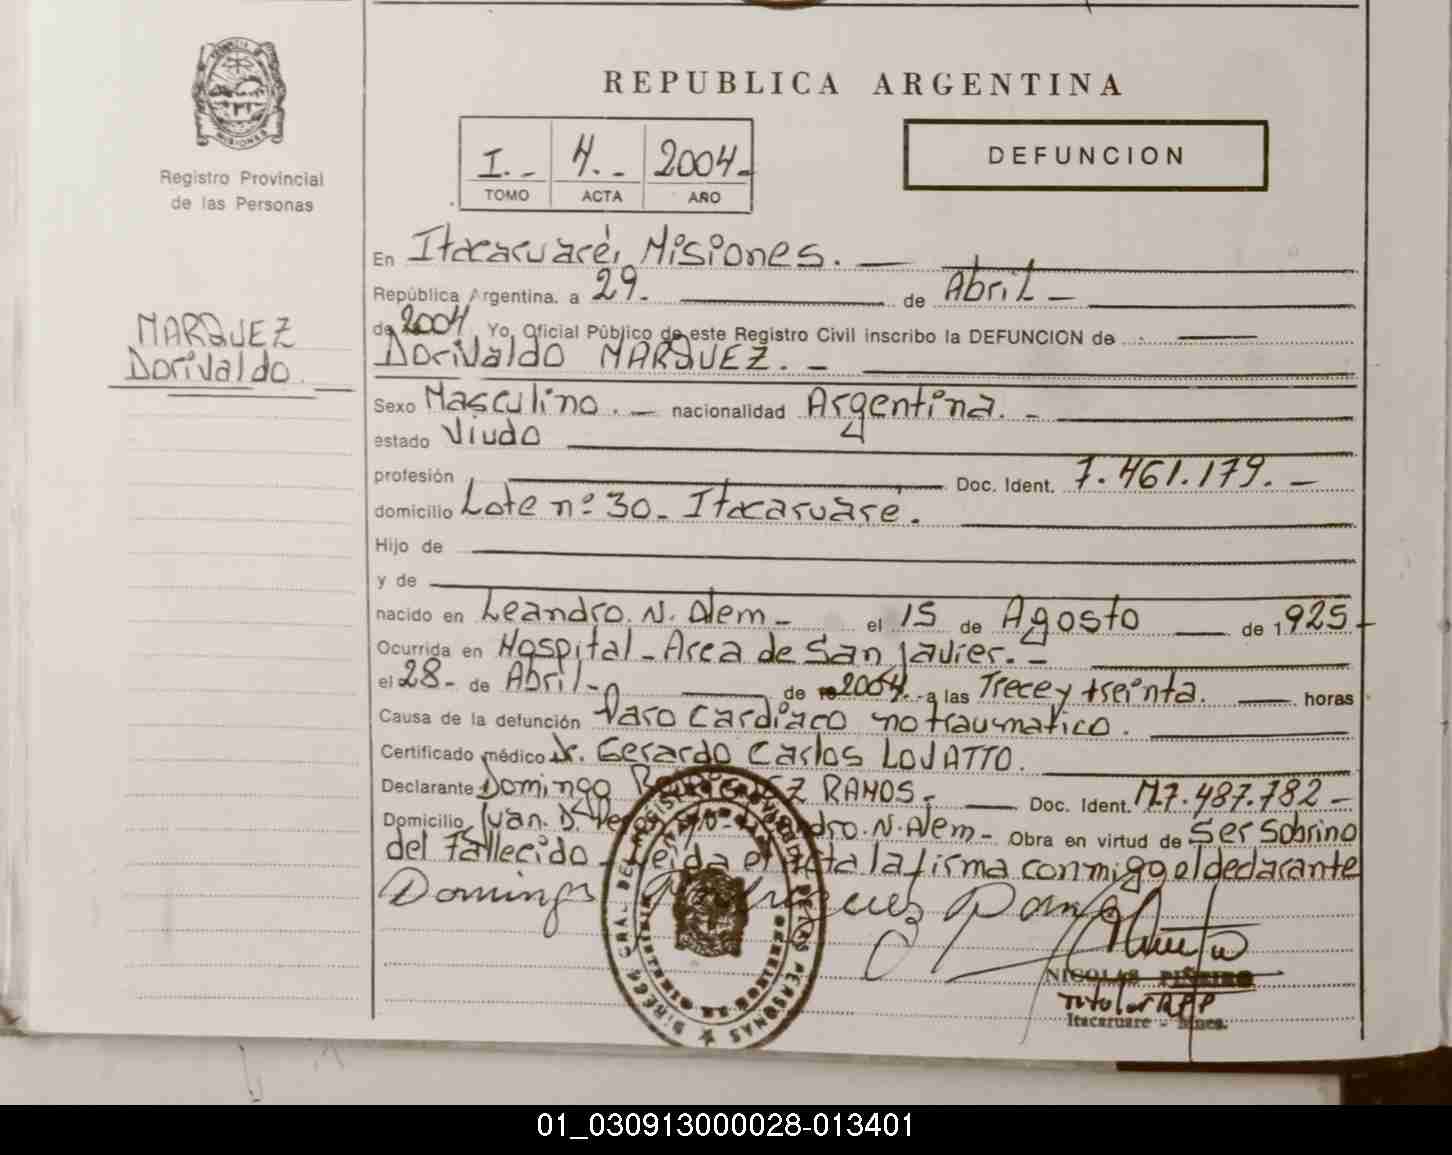 REPUBLICA ARGENTINA
MISIONES
Registro Provincial
de las Personas
I.- 4.- 2004-
TOMO ACTA AÑO
DEFUNCION
MARQUEZ
Dorivaldo.
En Itacaruaré, Misiones. —
República Argentina. a 29. — de Abril —
de 2004 Yo, Oficial Público de este Registro Civil inscribo la DEFUNCION de
Dorivaldo MARQUEZ. —
Sexo Masculino. — nacionalidad Argentina. —
estado Viudo
profesión — Doc. Ident. 7.461.179. —
domicilio Lote nº 30 - Itacaruaré.
Hijo de
y de
nacido en Leandro. N. Alem - el 15 de Agosto — de 1925 -
Ocurrida en Hospital - Area de San javier. -
el 28 - de Abril - de 2004. - a las Trece y treinta. — horas
Causa de la defunción Paro cardíaco no traumatico.
Certificado médico Dr. Gerardo Carlos LOVATTO.
Declarante Domingo RAMOS. — Doc. Ident. M7.487.782 -
Domicilio Juan. D. N. Alem - Obra en virtud de Ser Sobrino
del Fallecido - Leida el acta la firma conmigo el declarante
Domingo
NICOLAS PIÑEIRO
Titular RPP
Itacaruare - Mnes.
01_030913000028-013401